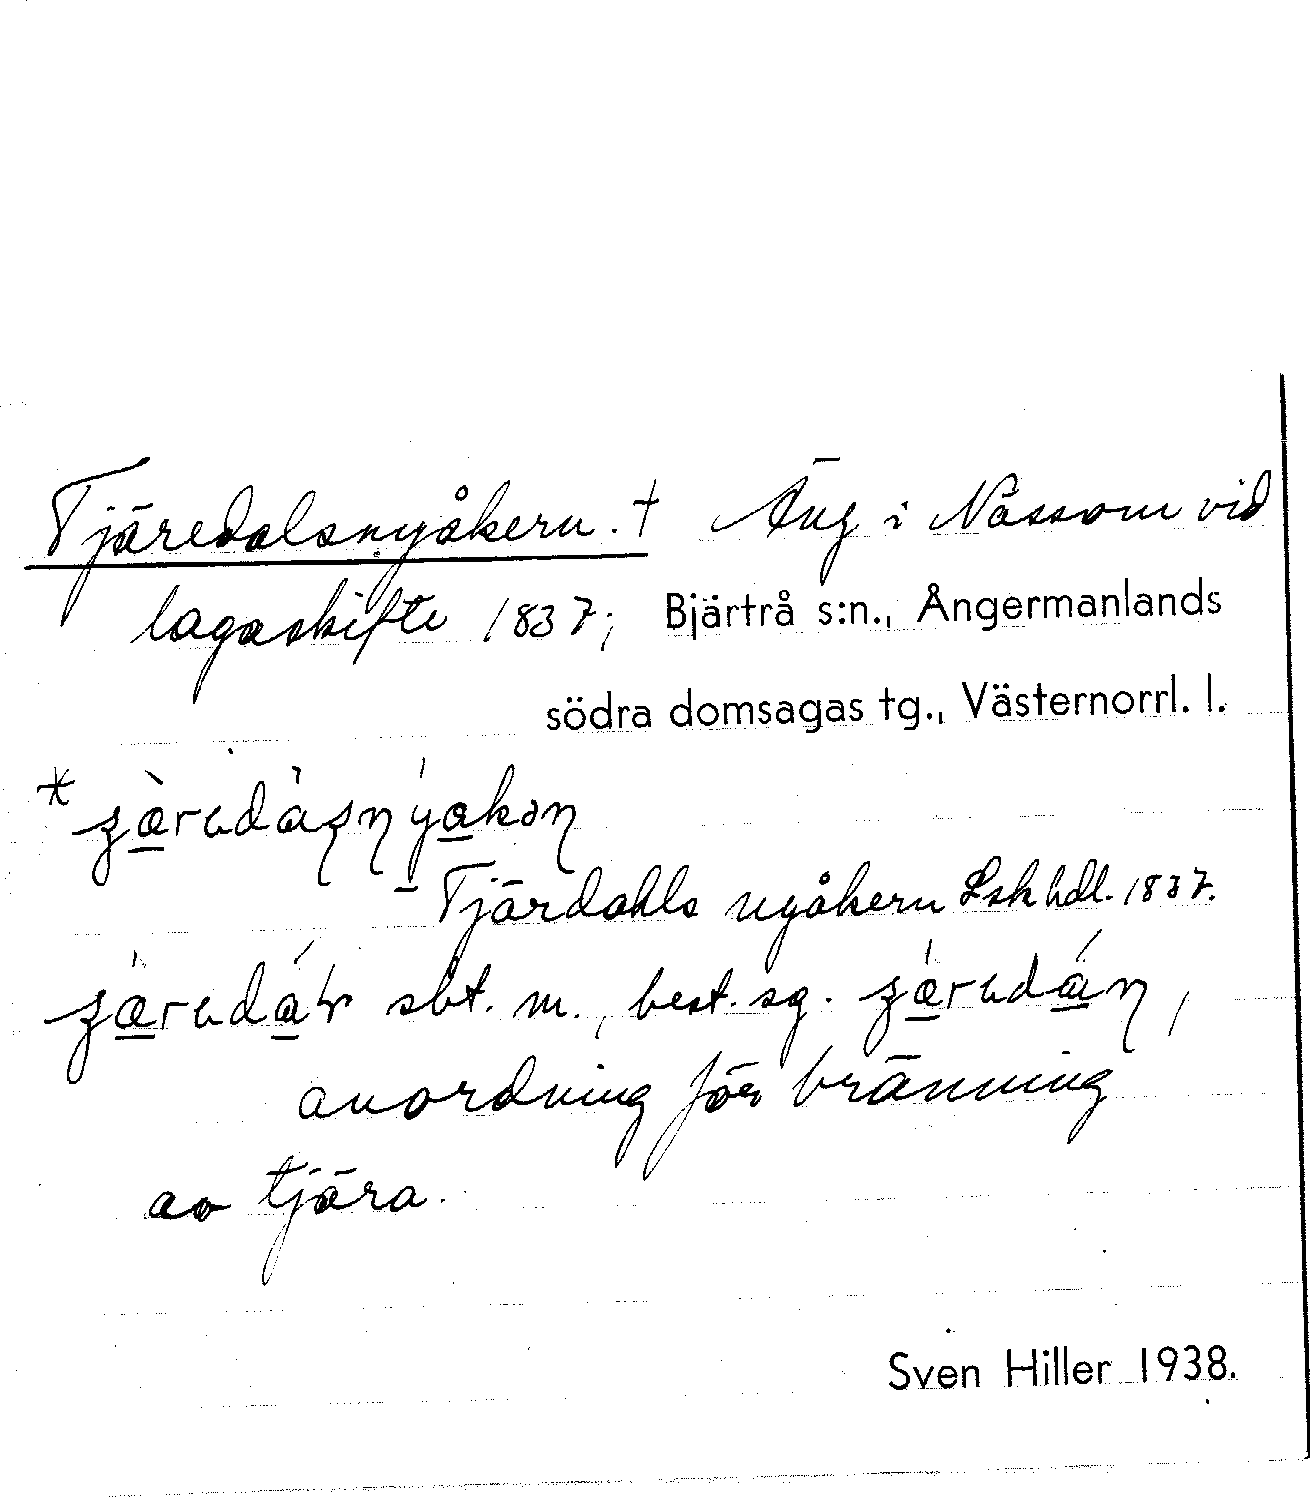 Tjäredalsnyåkern. † Äng i Nässom vid
lagaskifte 1837; Bjärtrå s:n., Ångermanlands
södra domsagas tg., Västernorrl. l.
*
– Tjärdahls nyåkern Lskhdl. 1837.
sbt. m., best. sg.
anordning för bränning
av tjära.
Sven Hiller 1938.